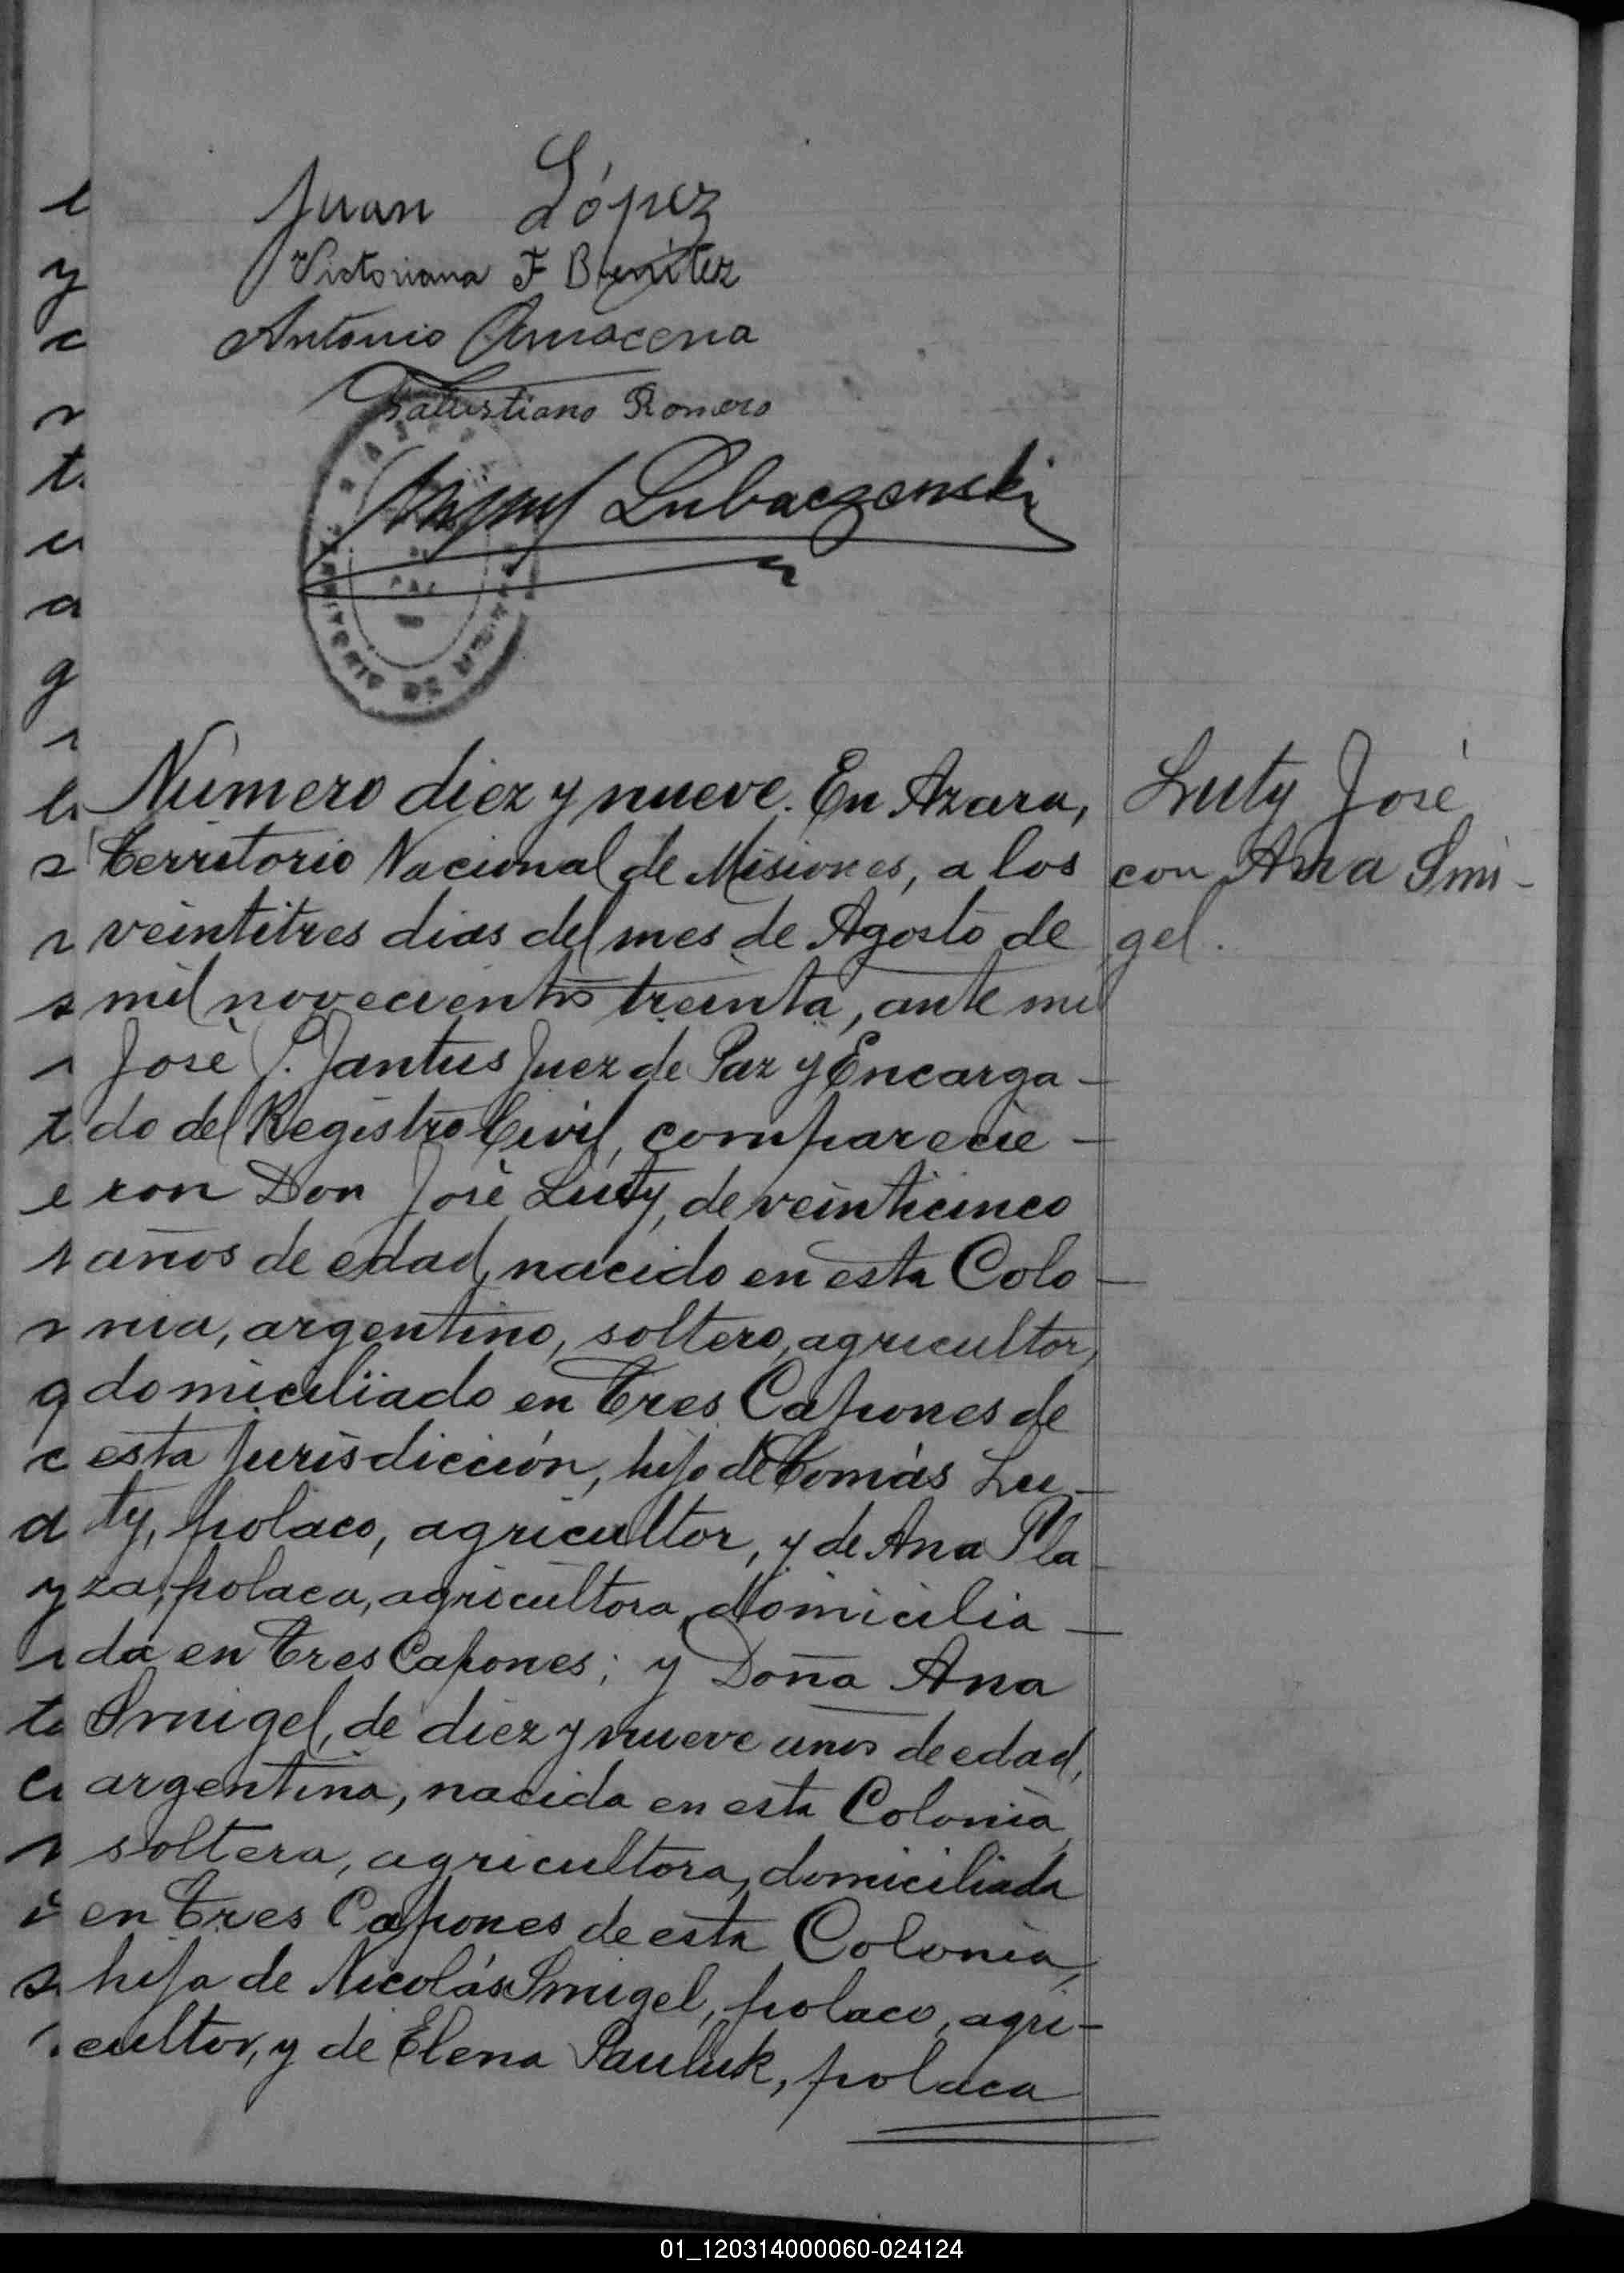 Juan López
Victoriana F Benítez
Antonio Amacena
Salustiano Romero
Miguel Lubaczewski
TERRITORIO DE
Número diez y nueve. En Azara,
Territorio Nacional de Misiones, a los
veintitres dias del mes de Agosto de
mil novecientos treinta, ante mi
José J. Jantus Juez de Paz y Encarga-
do del Registro Civil, comparecie-
ron Don José Luty, de veinticinco
años de edad, nacido en esta Colo-
nia, argentino, soltero, agricultor,
domiciliado en Tres Capones de
esta jurisdicción, hijo de Tomás Lu-
ty, polaco, agricultor, y de Ana Pla-
za, polaca, agricultora, domicilia-
da en Tres Capones; y Doña Ana
Smigel, de diez y nueve años de edad,
argentina, nacida en esta Colonia,
soltera, agricultora, domiciliada
en Tres Capones de esta Colonia,
hija de Nicolás Smigel, polaco, agri-
cultor, y de Elena Pauluk, polaca
Luty José
con Ana Smi-
gel.
01_120314000060-024124